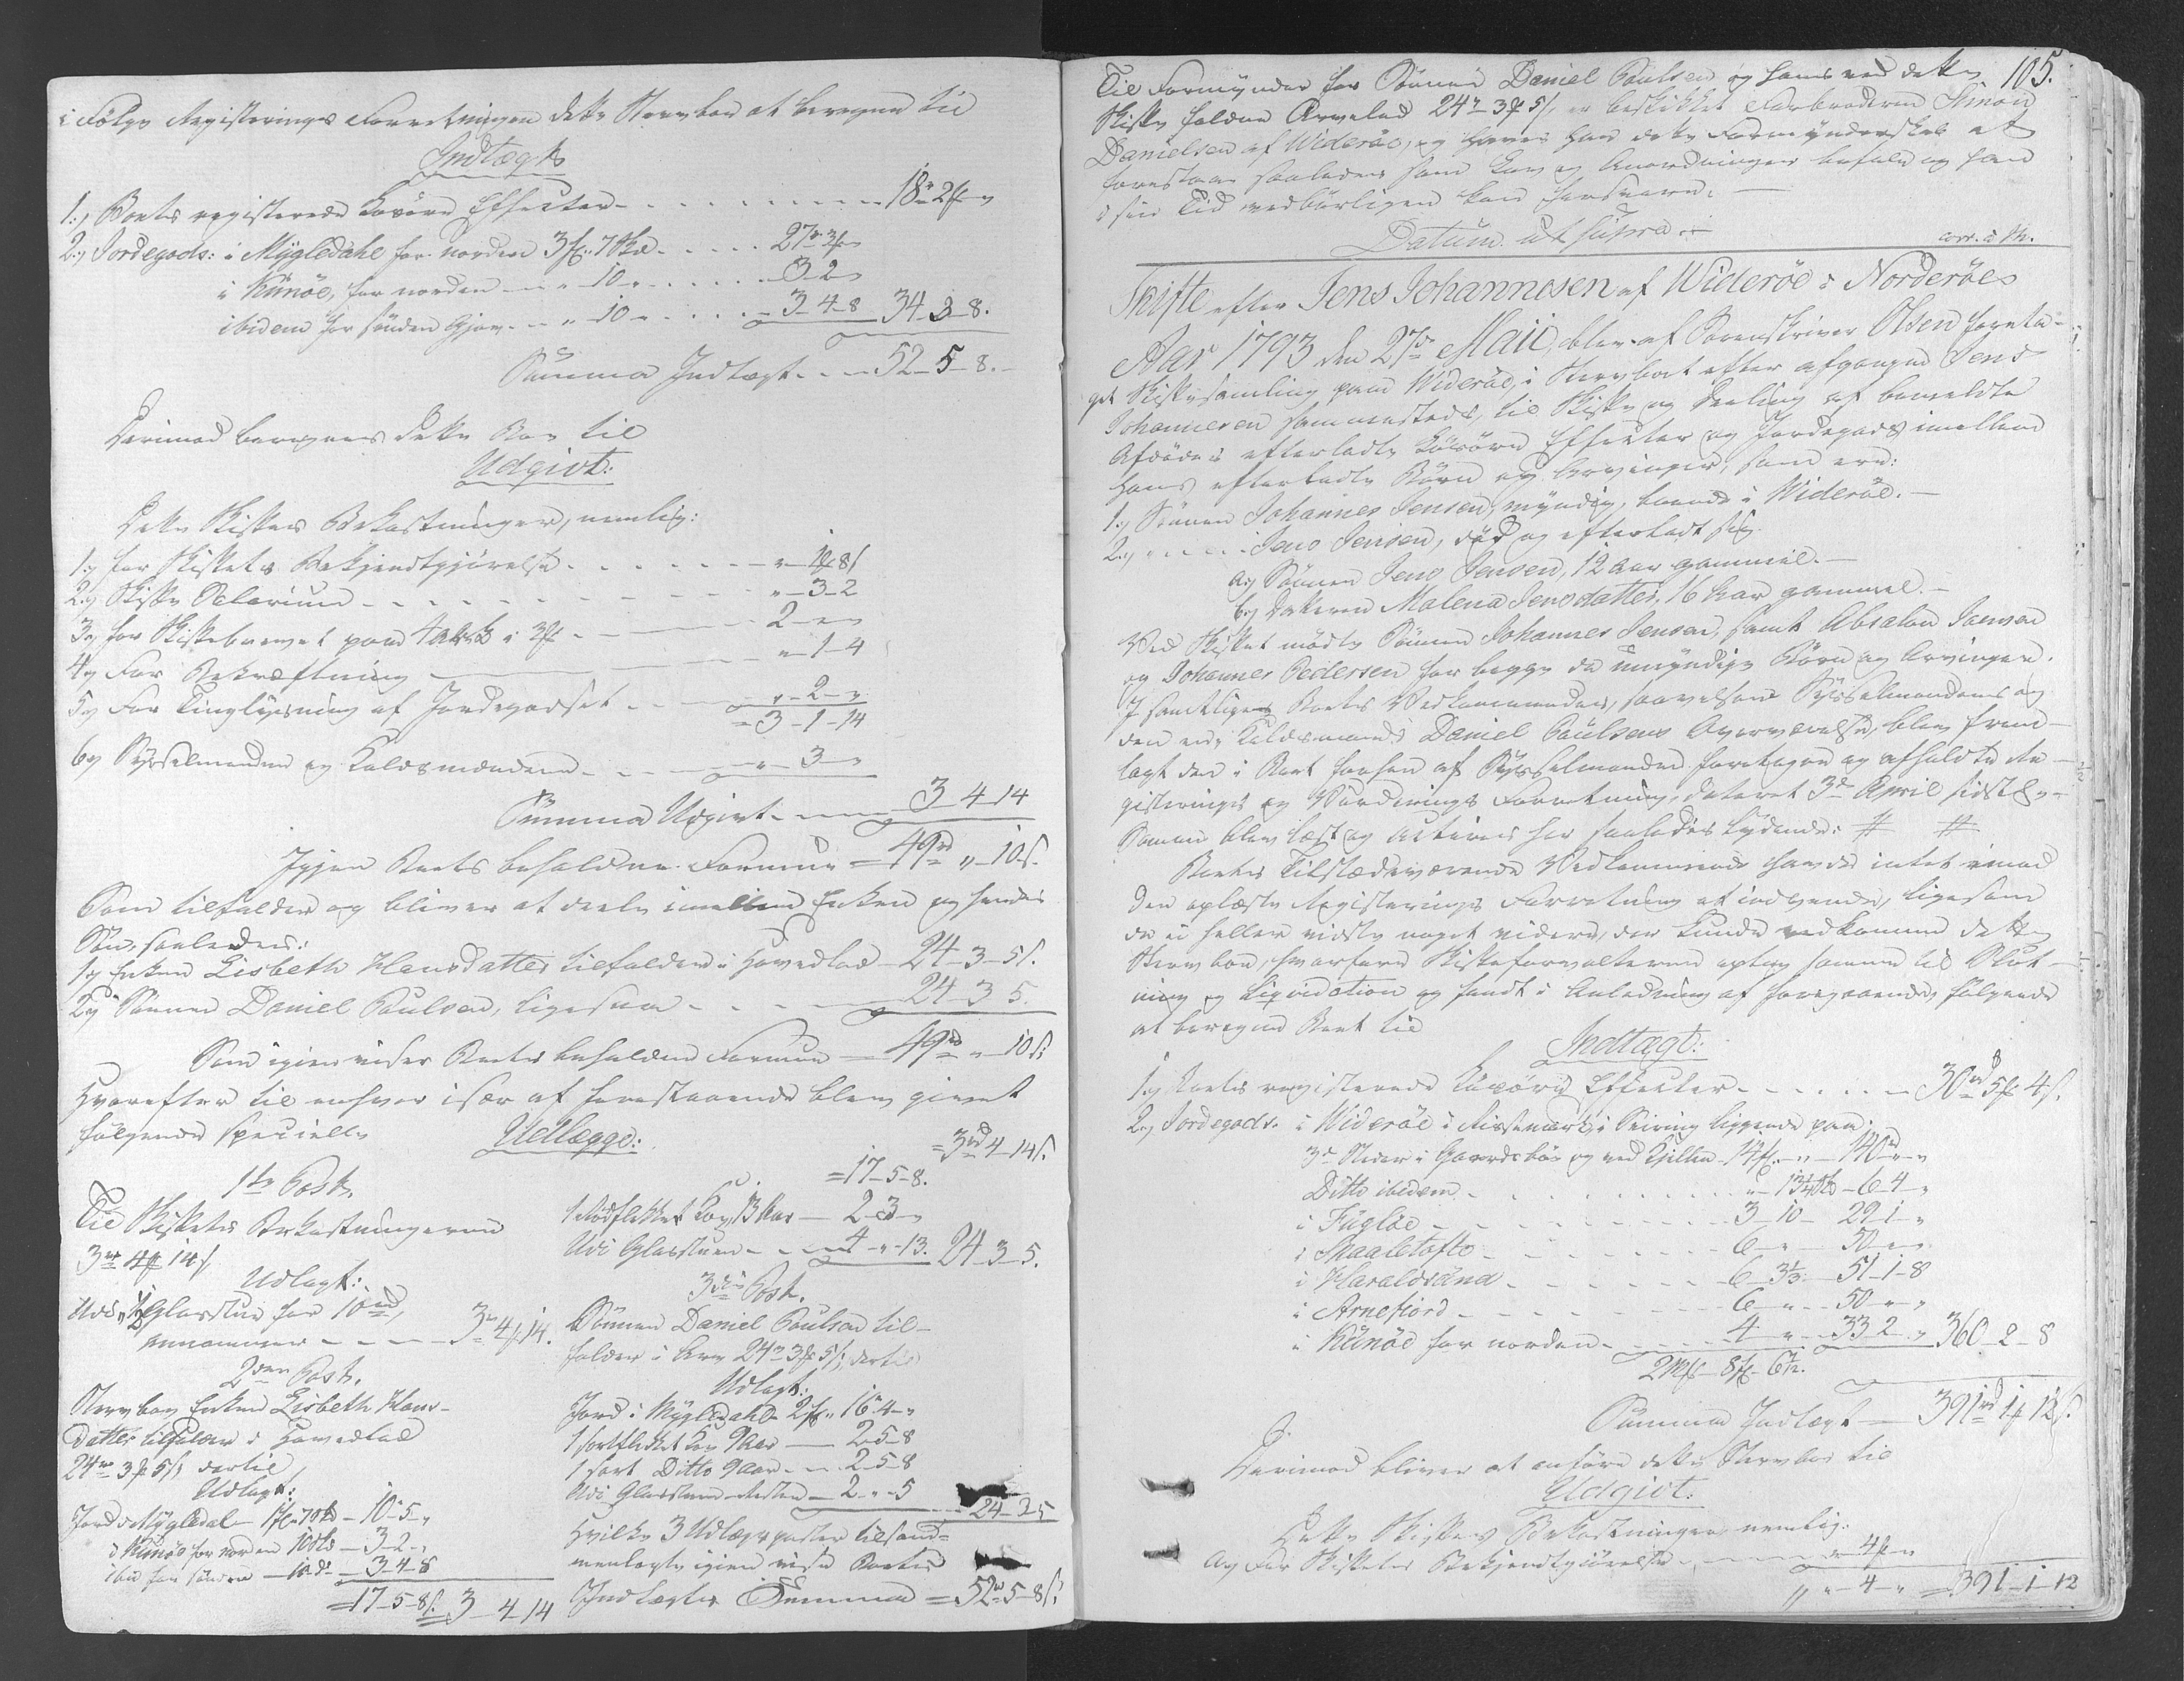 i Følge Registerings Forretningen dette Stervboe at beregne til
Indtægt
1:, Boets registerede Løsøre Effecter - - - 18rd 2f „
2:, Jordegods: i Mygledahl for norden 3f. 7skd - - - 27rd 2f „
i Künöe, for norden - - „ 10 „ - - - 3 „ 2 „
ibidem for sønden Gjow - - „ 10 „ - - - 3 - 4 - 8 34 - 3 - 8.
Summa Indtægt - - - 52 - 5 - 8. -
Derimod beregnes dette Boe til
Udgivt:
Dette Skiftes Bekostninger, nemlig:
1:, for Skiftets Bekjendtgjørelse - - - „ 1f 8s
2:, Skifte Salarium - - - „ - 3 - 2
3:, for Skiftebrevet paa 4 ark à 3f - - - 2 - „ - „
4:, For Bekræftning - - - „ - 1 - 4
5:, For Tinglysning af Jordegodset - - - „ - 2 - „
= 3 - 1 - 14
6:, Sysselmanden og Kaldsmændene - - - „ - 3 - „
Summa Udgivt - - - 3 4 14
Igjen Boets beholdne Formue = 49rd „ - 10s.
Som tilfalder og bliver at deele imellem Enken og hendes
Søn, saaledes:
1:, Enken Lisbeth Hansdatter tilfalder i Hovedlod - 24 - 3 - 5s.
2:, Sønnen Daniel Poulsen, ligesaa - - - 24 - 3 5.
Som igien viser Boets beholdne Formue - 49rd „ - 10s.
Hvorefter til enhver især af forestaaende blev givet
følgende specielle Udlægge:
1ste Post.
Til Skiftets Bekostningerne
3rd 4f 14s
Udlagt:
Udi „ 1/2 Glasstue for 10rd,
annammer - - - 3rd 4f 14.
2den Post.
Stervboe Enken Lisbeth Hans-
datter tilfalder i Hovedlod
24rd 3f 5s, dertil
Udlagt:
Jord i Mygledal - 1f. 7skd - 10 - 5 - „
i Künöe for norden 10skd - 3 - 2 - „
ibid for sønden - 10 d: - 3 - 4 - 8
= 17 - 5 - 8s. 3 - 4 14
= 3rd 4 - 14s.
= 17 - 5 - 8.
1 Rødflekket Koe, 13 Aar - 2 - 3 - „
Udi Glasstuen - - - 4 - „ - 13. 24 - 3 - 5.
3die Post.
Sønnen Daniel Poulsen til-
falder i Arv 24rd 3f 5s, dertil
Udlagt:
Jord i Mygledahl - 2f. „ 16 - 4 - „
1 sortflekket Koe 9 Aar - 2 - 5 - 8
1 sort Ditto 9 aar - - 2 - 5 - 8
Udi Glasstuen Resten - 2 - „ - 5
24 - 3 - 5
Hvilke 3 Udlægsposter tilsam-
menlagte igien viser Boets
Indtægts Summa = 52rd 5 - 8s.
105.
Til Formynder for Sønnen Daniel Poulsen og hans ved dette
Skifte faldne Arvelod 24rd 3f 5s, er beskikket Farbroderen Simon
Danielsen af Widerøe, og haver han dette Formynderskab at
forestaae saaledes som Lov og Anordninger befale og han
i sin Tid vedbørligen kan forsvare. -
Datum ut supra. -
corr. à M.
Skifte efter Jens Johannesen af Widerøe i Norderöe
Aar 1793 den 27de Maii, blev af Sorenskriver Olsen foreta-
get Skiftesamling paa Widerøe, i Stervboet efter afgangne Jens
Johannesen sammesteds, til Skifte og Deeling af bemeldte
Afdødes efterladte Løsøre Effecter og Jordegods imellem
hans efterladte Børn og Arvinger, som ere:
1:, Sønnen Johannes Jensen, myndig, boende i Widerøe. -
2:, - - - Jens Jensen, død og efterladt sig
a:, Sønnen Jens Jensen, 12 Aar gammel. -
b:, Datteren Malena Jensdatter, 16 Aar gammel. -
Ved Skiftet mødte Sønnen Johannes Jensen, samt Absalon Joensen
og Johannes Pedersen for begge de umyndige Børn og Arvinger.
I samtlige Boets Vedkommendes, saavelsom Sysselmandens og
den ene Kaldsmands Daniel Poulsens Overværelse, blev frem-
lagt den i Boet forhen af Sysselmanden foretagne og afholdte Re-
gisterings og Vurderings Forretning, dateret 3de April sidstl: -
Samme blev læst og acteres her saaledes lydende: # #
Boets Tilstædeværende Vedkommende havde intet imod
den oplæste Registerings Forretning at indvende, ligesom
de ei heller vidste noget videre, der kunde vedkomme dette
Stervboe, hvorfore Skifteforvalteren optog samme til Slut-
ning og Liqvidation og fandt i Anledning af foregaaende, følgende
at beregne Boet til
Indtægt:
1:, Boets registerede Løsøre Effecter - - - 30rd 5f 4s.
2:, Jordegods. i Widerøe i
3de Steder i Gaardsbøe og ved Kjilden 14f. - „ - 140rd „ „
Ditto ibidem - - - „ - 13 1/4skd - 6 - 4 - „
i Fugløe - - - 3 - 10 - 29 - 1 - „
i Skaaletofte - - - 6 - „ - 50 - „ - „
i Haraldsünd - - - 6 - 3 1/3 - 51 - 1 - 8
i Arnefiord - - - 6 - „ - 50 - „ - „
i Künöe for norden - - - 4 - „ - 33 2 „ 360 - 2 - 8
2 Mk - 8f - 6 7/12.
Summa Indtægt - 391rd 1f 12s.
Derimod bliver at anføre dette Stervboe til
Udgivt:
Dette Skiftes Bekostninger nemlig:
a:, For Skiftets Bekjendtgiørelse - - - „ 4f „
„ „ - 4 - „ = 391 - 1 - 12